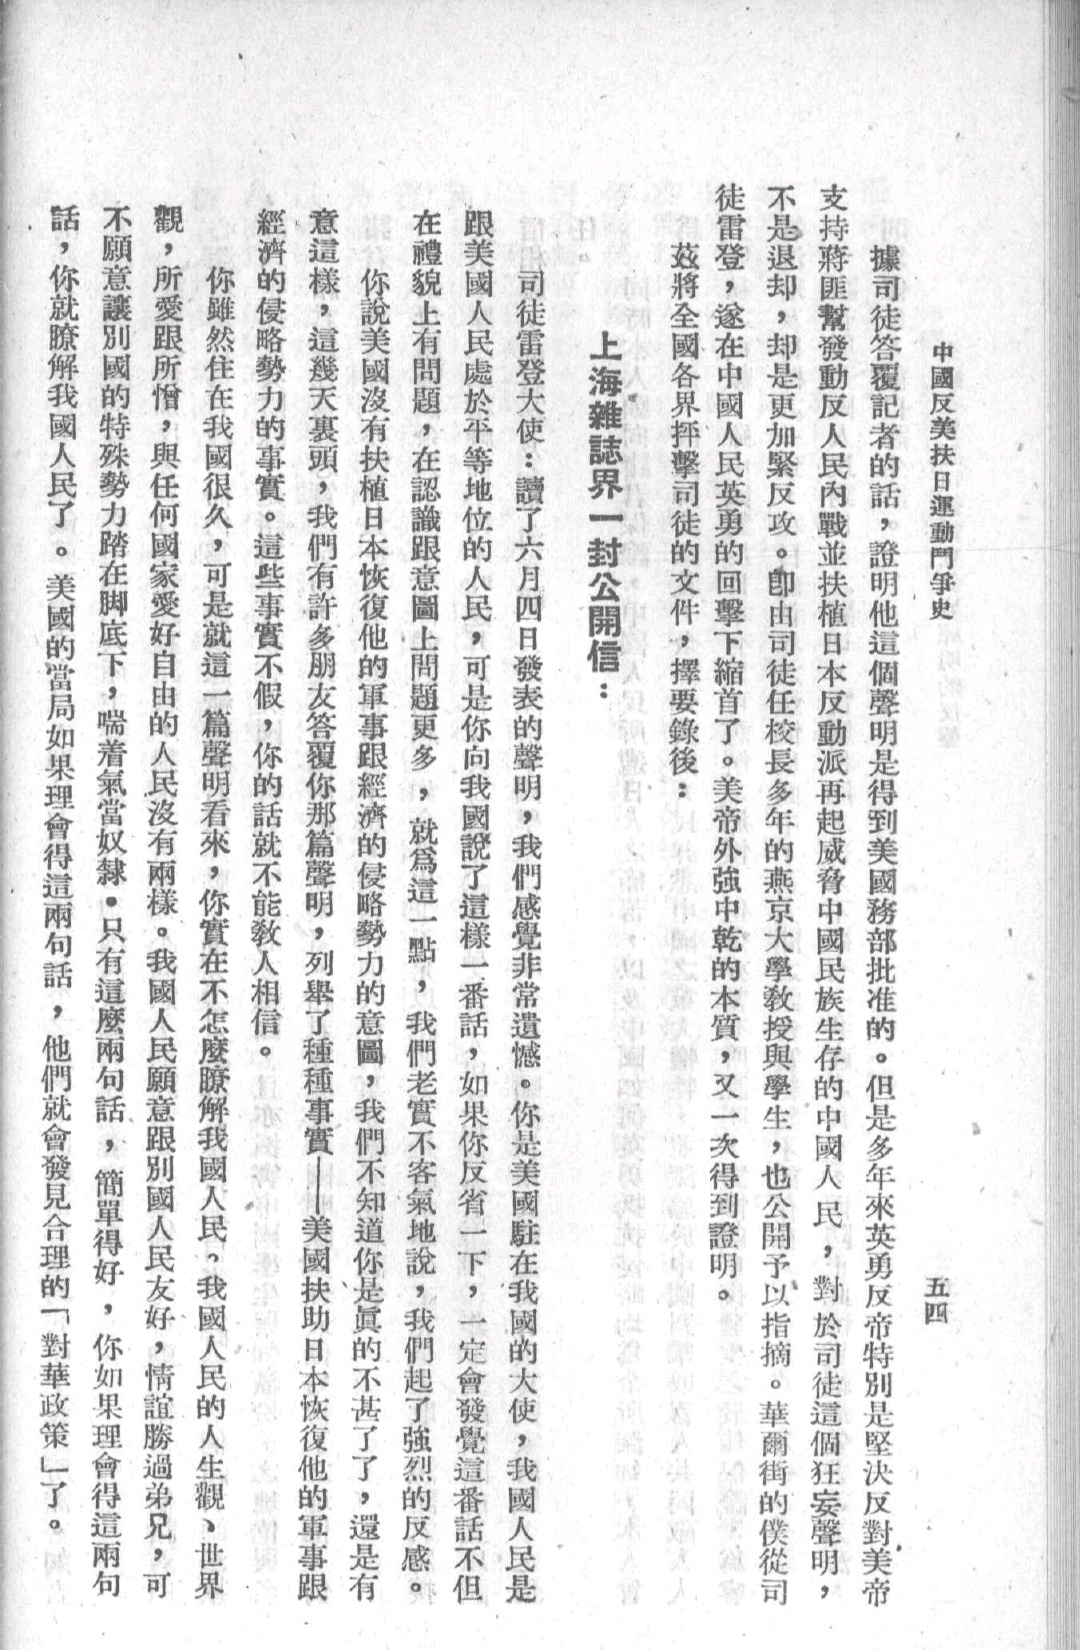 中國反美扶日運動鬥爭史
五四
據司徒答覆記者的話，證明他這個聲明是得到美國務部批准的。但是多年來英勇反帝特別是堅決反對美帝
支持蔣匪幫發動反人民內戰並扶植日本反動派再起威脅中國民族生存的中國人民，對於司徒這個狂妄聲明，
不是退却，却是更加緊反攻。卽由司徒任校長多年的燕京大學教授與學生，也公開予以指摘。華爾街的僕從司
徒雷登，遂在中國人民英勇的回擊下縮首了。美帝外強中乾的本質，又一次得到證明。
茲將全國各界抨擊司徒的文件，擇要錄後：
上海雜誌界一封公開信：
司徒雷登大使：讀了六月四日發表的聲明，我們感覺非常遺憾。你是美國駐在我國的大使，我國人民是
跟美國人民處於平等地位的人民，可是你向我國說了這樣一番話，如果你反省一下，一定會發覺這番話不但
在禮貌上有問題，在認識跟意圖上問題更多，就爲這一點，我們老實不客氣地說，我們起了強烈的反感。
你說美國沒有扶植日本恢復他的軍事跟經濟的侵略勢力的意圖，我們不知道你是眞的不甚了了，還是有
意這樣，這幾天裏頭，我們有許多朋友答覆你那篇聲明，列舉了種種事實——美國扶助日本恢復他的軍事跟
經濟的侵略勢力的事實。這些事實不假，你的話就不能教人相信。
你雖然住在我國很久，可是就這一篇聲明看來，你實在不怎麼瞭解我國人民。我國人民的人生觀、世界
觀，所愛跟所憎，與任何國家愛好自由的人民沒有兩樣。我國人民願意跟別國人民友好，情誼勝過弟兄，可
不願意讓別國的特殊勢力踏在脚底下，喘着氣當奴隸。只有這麼兩句話，簡單得好，你如果理會得這兩句
話，你就瞭解我國人民了。美國的當局如果理會得這兩句話，他們就會發見合理的「對華政策」了。